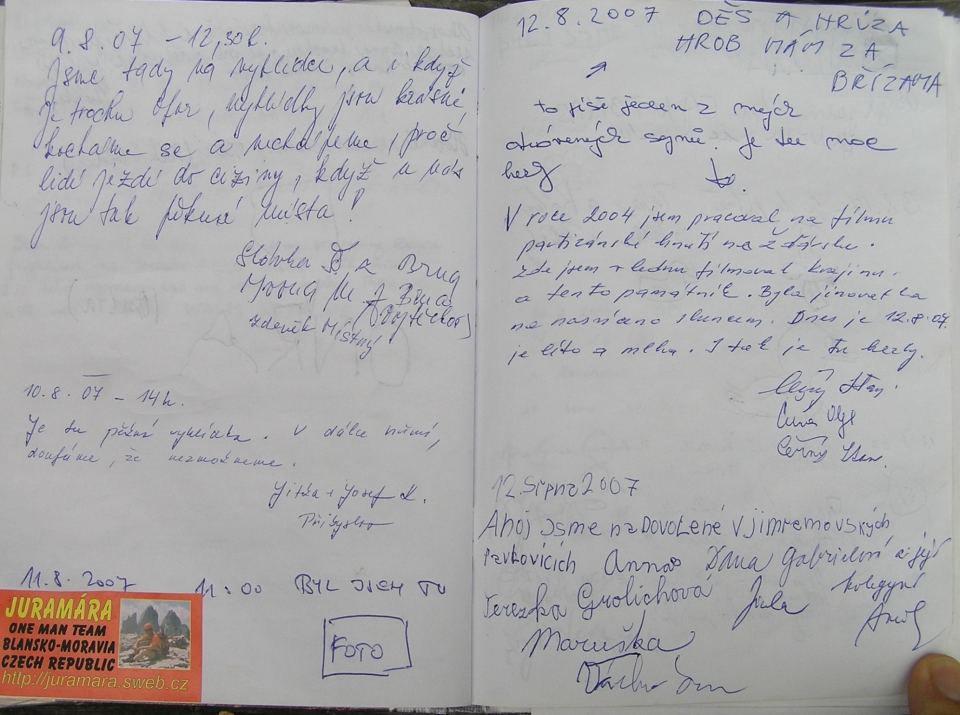 9.8.07 - 12,30h.
jsme tady na vyhlídce, a i když
je trochu ofuk, vyhlídky jsou krásné
kocháme se a nechápeme, proč
lidi jezdí do ciziny, když u nás
jsou tak pěkná místa!
Slávka z Brna
M. z Brna
Zdeněk Místný
10.8.07 - 14h.
Je tu pěkná vyhlídka. V dálce hřmí,
doufáme, že nezmokneme.
Jitka + Josef K.
Přibyslav
11.8.2007 11:00 BYL JSEM TU
FOTO
JURAMÁRA
ONE MAN TEAM
BLANSKO-MORAVIA
CZECH REPUBLIC
http://juramara.sweb.cz
12.8.2007 DĚS A HRŮZA
HROB MÁM ZA
BŘÍZAMA
to píše jeden z mých
otvorených synů. Je tu moc
hezky
V roce 2004 jsem pracoval na filmu
partizánské hnutí na Žďársku.
Zde jsem v lednu filmoval krajinu
a tento památník. Byla jinovatka
na nasvíceno sluncem. Dnes je 12.8.07.
je léto a mlha. I tak je tu hezky.
Černý Stan.
12. srpna 2007
Ahoj jsme na Dovolené v jimramovských
Pavlovicích Anna Dana Gabrielová a její
Terezka Grolichová Jula kolegyní
Maruška